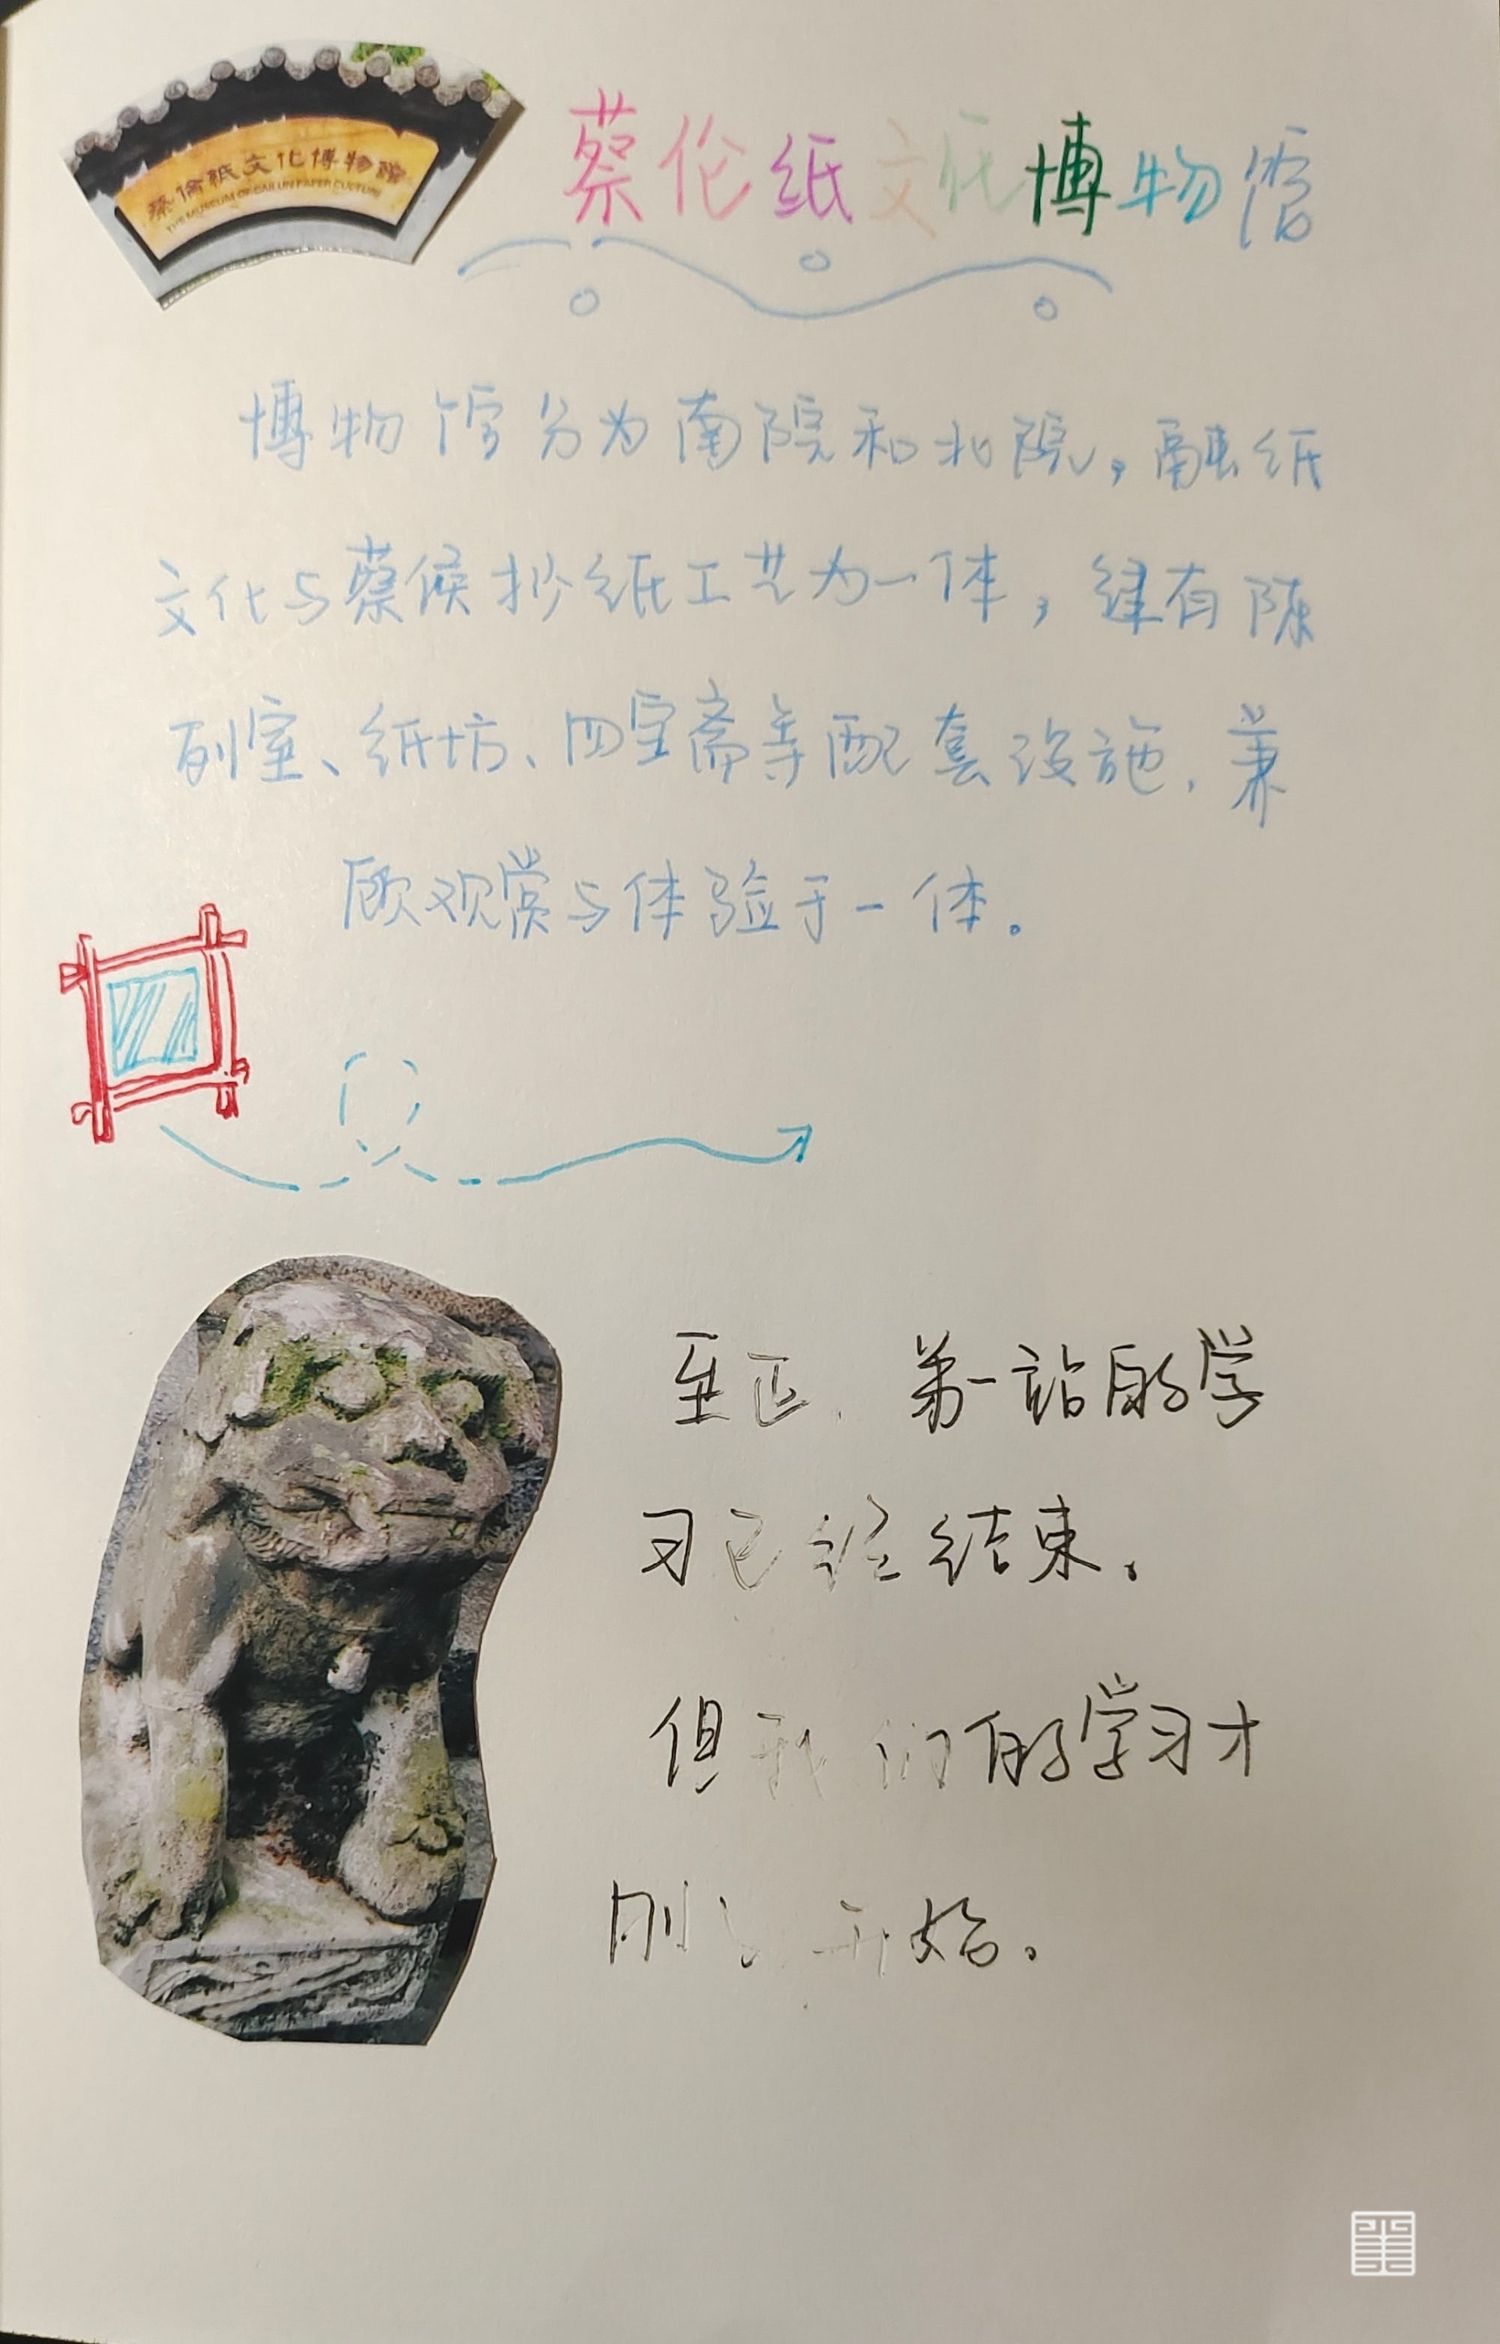 蔡倫紙文化博物館
THE MUSEUM OF CAILUN PAPER CULTURE
蔡伦纸文化博物馆
博物馆分为南院和北院，融纸
文化与蔡侯抄纸工艺为一体，建有陈
列室、纸坊、四宝斋等配套设施，兼
顾观赏与体验于一体。
至此，第一站的学
习已经结束。
但我们的学习才
刚刚开始。